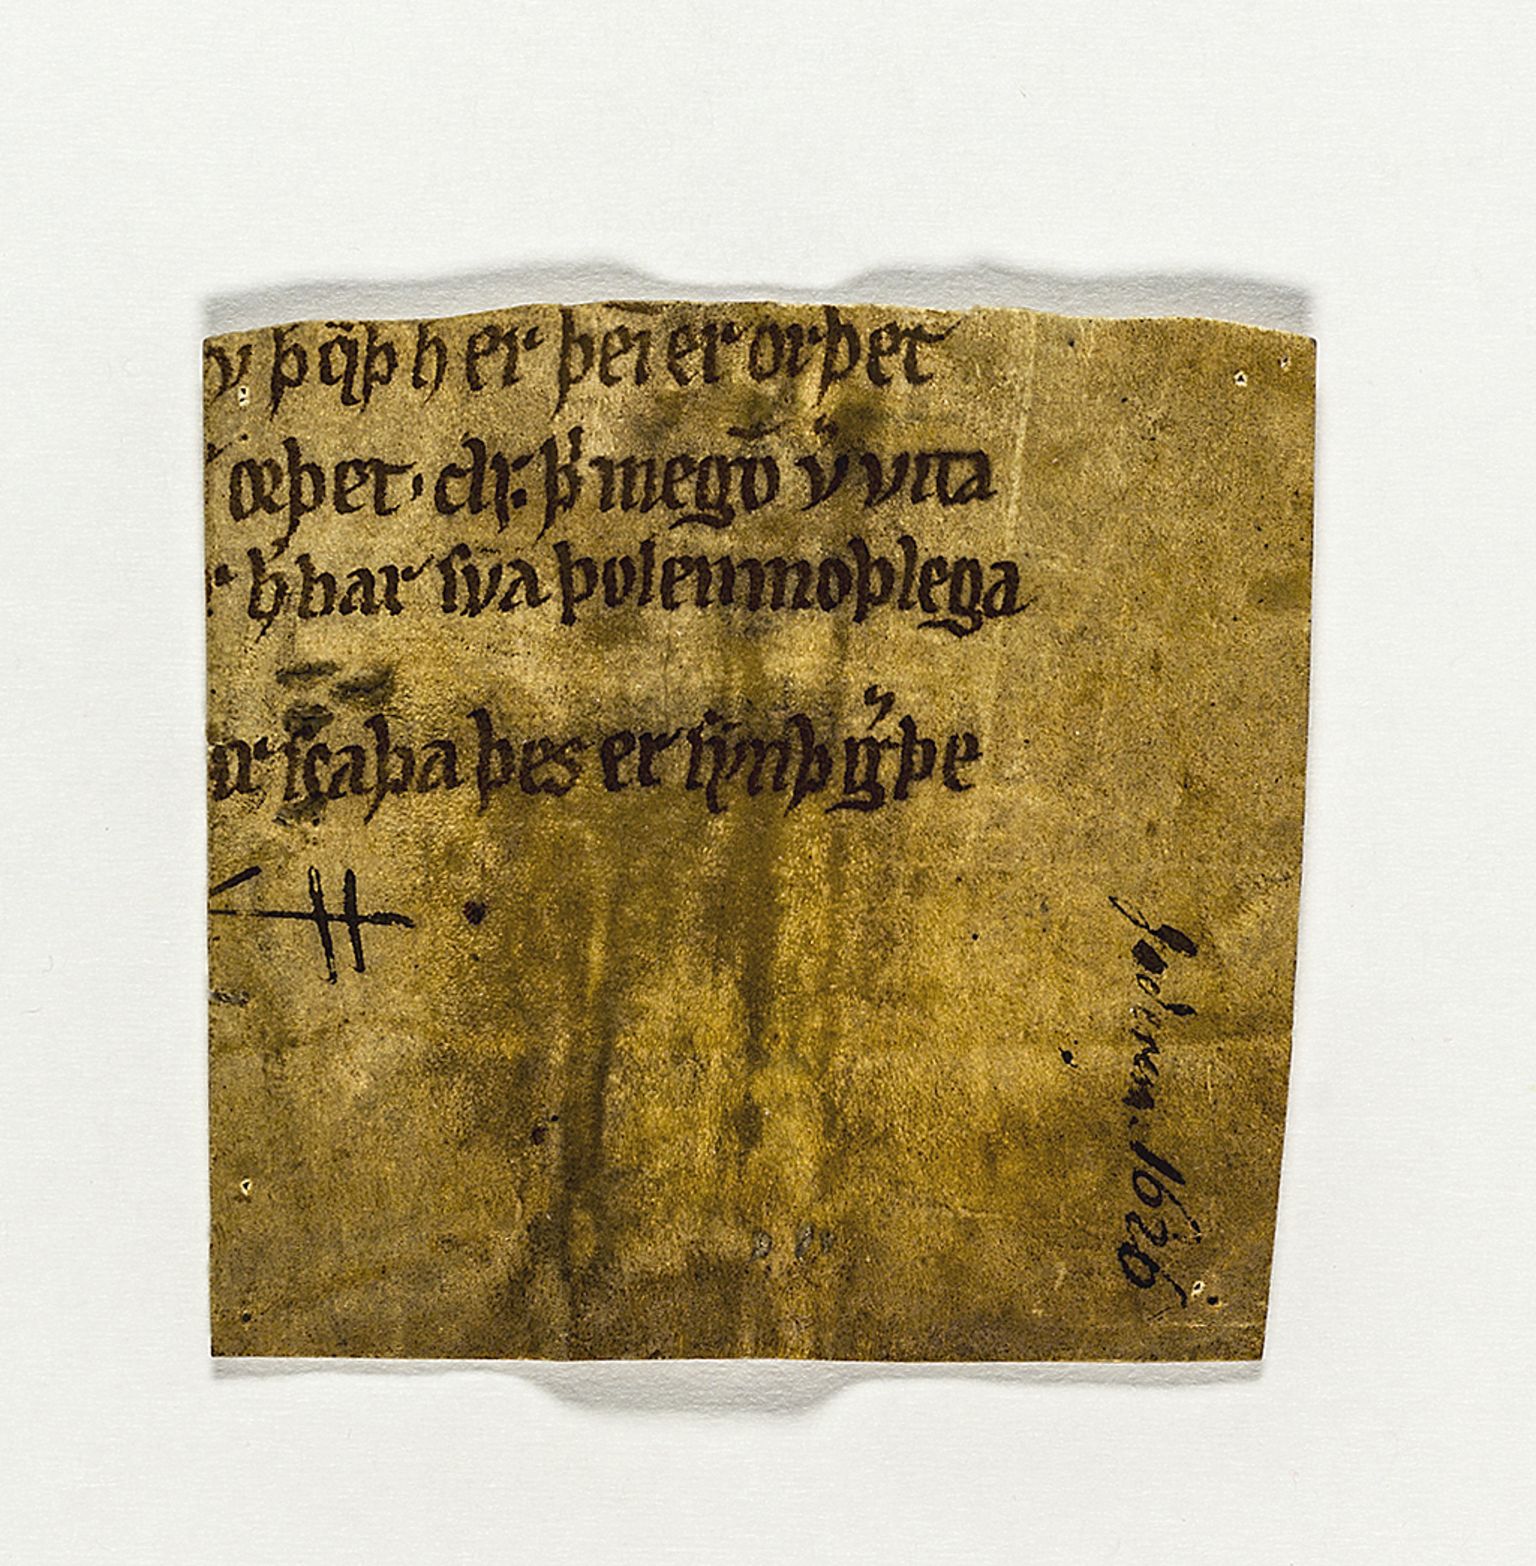 v þ q̄þ h er þei er orþet
orþet · chr. þ͛ megō v̇ vita
h̵ bar sva þolenmoþlega
ar scaþa þes er synþg͛þe
1626